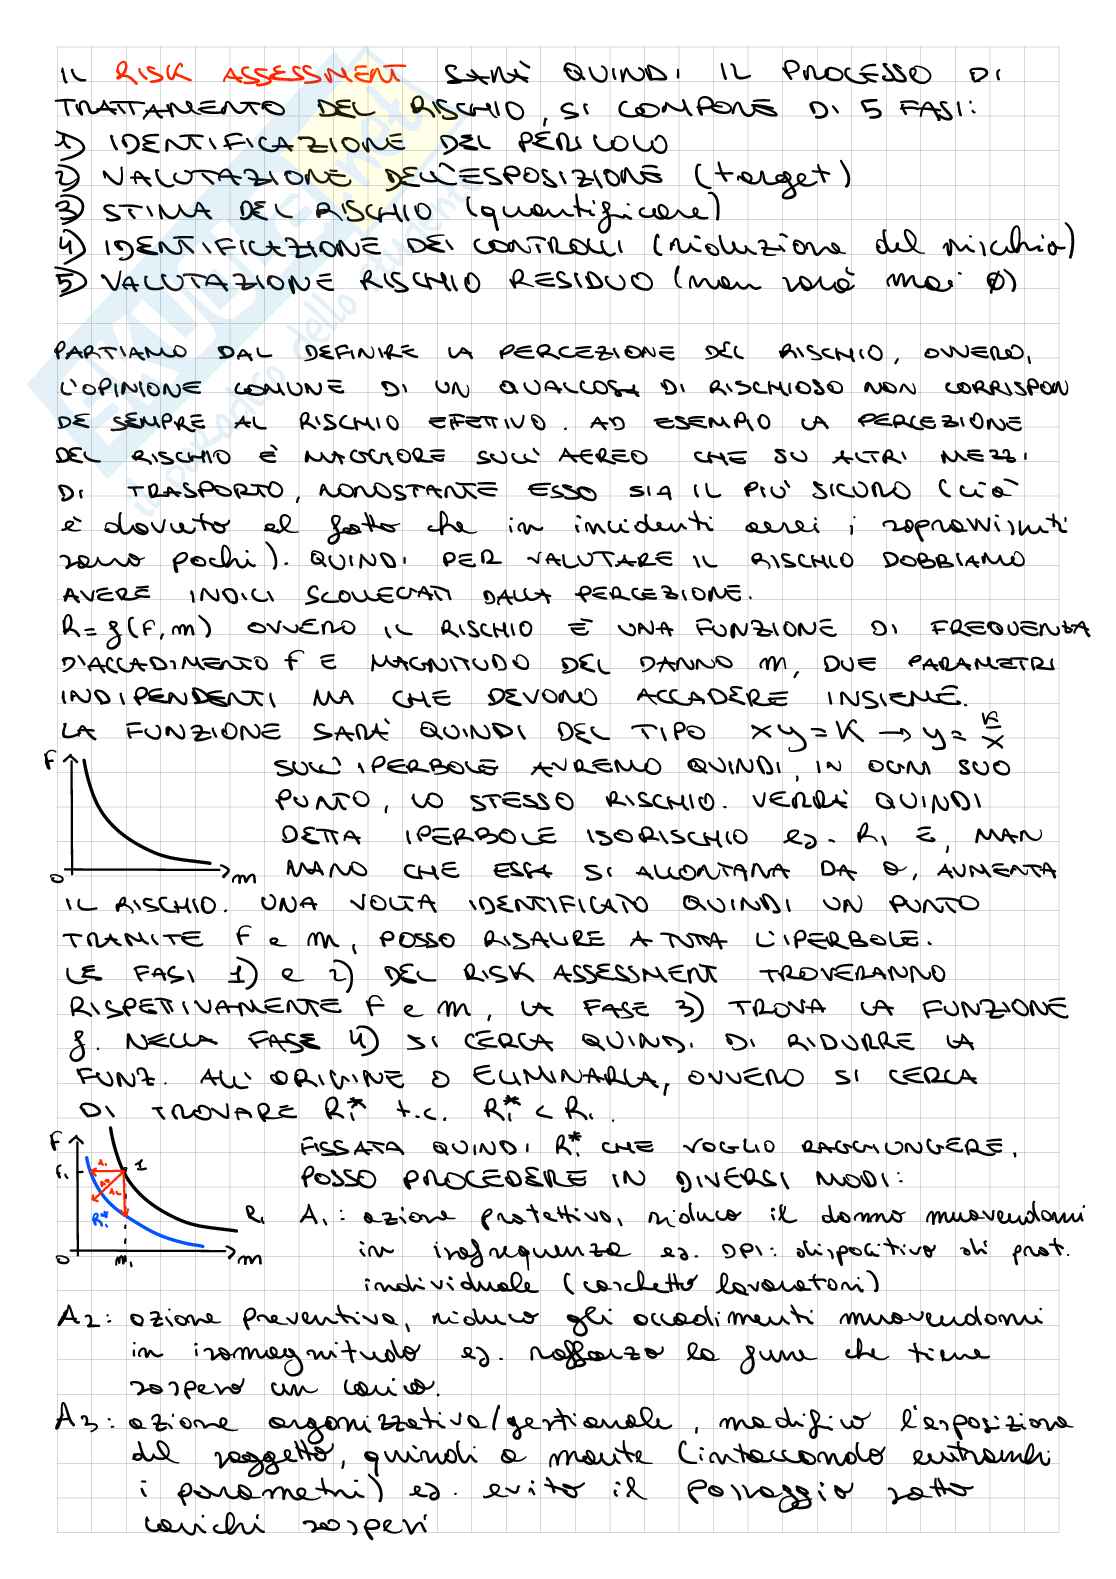 IL RISK ASSESSMENT SARÀ QUINDI IL PROCESSO DI
TRATTAMENTO DEL RISCHIO, SI COMPONE DI 5 FASI:
1) IDENTIFICAZIONE DEL PERICOLO
2) VALUTAZIONE DELL'ESPOSIZIONE (target)
3) STIMA DEL RISCHIO (quantificare)
4) IDENTIFICAZIONE DEI CONTROLLI (riduzione del rischio)
5) VALUTAZIONE RISCHIO RESIDUO (non sarà mai Ø)
PARTIAMO DAL DEFINIRE LA PERCEZIONE DEL RISCHIO, OVVERO,
L'OPINIONE COMUNE DI UN QUALCOSA DI RISCHIOSO NON CORRISPON
DE SEMPRE AL RISCHIO EFFETTIVO. AD ESEMPIO LA PERCEZIONE
DEL RISCHIO È MAGGIORE SULL'AEREO CHE SU ALTRI MEZZI
DI TRASPORTO, NONOSTANTE ESSO SIA IL PIÙ SICURO (ciò
è dovuto al fatto che in incidenti aerei i sopravvissuti
sono pochi). QUINDI PER VALUTARE IL RISCHIO DOBBIAMO
AVERE INDICI SCOLLEGATI DALLA PERCEZIONE.
R=f(F,m) OVVERO IL RISCHIO È UNA FUNZIONE DI FREQUENZA
D'ACCADIMENTO F E MAGNITUDO DEL DANNO m, DUE PARAMETRI
INDIPENDENTI MA CHE DEVONO ACCADERE INSIEME.
LA FUNZIONE SARÀ QUINDI DEL TIPO xy=K → y=K/x
F
SULL'IPERBOLE AVREMO QUINDI, IN OGNI SUO
PUNTO, LO STESSO RISCHIO. VERRÀ QUINDI
DETTA IPERBOLE ISORISCHIO es. R1 E, MAN
0 m
MANO CHE ESSA SI ALLONTANA DA 0, AUMENTA
IL RISCHIO. UNA VOLTA IDENTIFICATO QUINDI UN PUNTO
TRAMITE F e m, POSSO RISALIRE A TUTTA L'IPERBOLE.
LE FASI 1) e 2) DEL RISK ASSESSMENT TROVERANNO
RISPETTIVAMENTE F e m, LA FASE 3) TROVA LA FUNZIONE
f. NELLA FASE 4) SI CERCA QUINDI DI RIDURRE LA
FUNZ. ALL'ORIGINE O ELIMINARLA, OVVERO SI CERCA
DI TROVARE R1* t.c. R1* < R1.
F
F1
1
A1
A3
A2
R1*
R1
0 m1 m
FISSATA QUINDI R1* CHE VOGLIO RAGGIUNGERE,
POSSO PROCEDERE IN DIVERSI MODI:
A1: azione protettiva, riduco il danno muovendomi
in isofrequenza es. DPI: dispositivo di prot.
individuale (caschetto lavoratori)
A2: azione preventiva, riduco gli accadimenti muovendomi
in isomagnitudo es. rafforzo la fune che tiene
sospeso un carico.
A3: azione organizzativa/gestionale, modifico l'esposizione
del soggetto, quindi a monte (intaccando entrambi
i parametri) es. evito il passaggio sotto
carichi sospesi